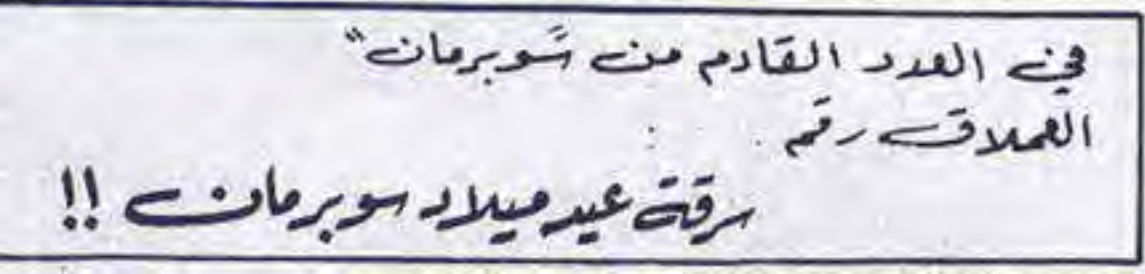 في العدد القادم من سوبرمان"
العملاق رقم :
سرقة عيد ميلاد سوبرمان !!